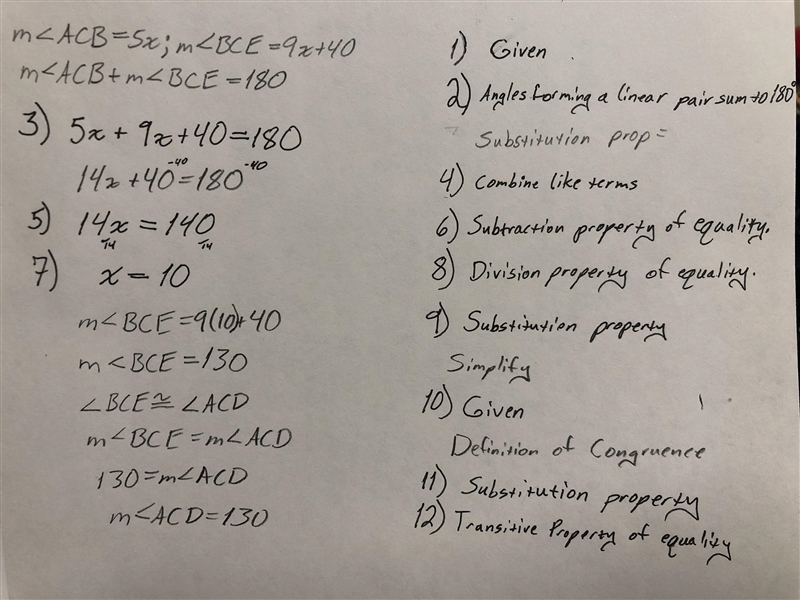 m∠ACB=5x; m∠BCE=9x+40
1) Given
m∠ACB+m∠BCE=180
2) Angles forming a linear pair sum to 180°
3) 5x+9x+40=180
Substitution prop=
14x+40-40=180-40
4) Combine like terms
5) 14x=140
14 14
6) Subtraction property of equality.
7) x=10
8) Division property of equality.
m∠BCE=9(10)+40
9) Substitution property
m∠BCE=130
Simplify
∠BCE≅∠ACD
10) Given
m∠BCE=m∠ACD
Definition of Congruence
130=m∠ACD
11) Substitution property
m∠ACD=130
12) Transitive Property of equality